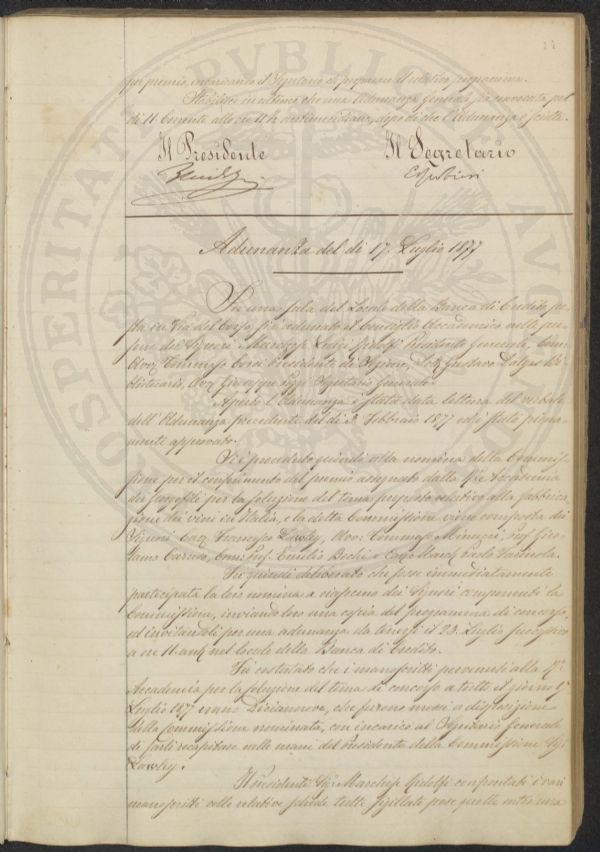 pel premio, incaricando il Segretario di preparare il relativo programma.
Stabilisce in ultimo che una Adunanza Generale sia convocata pel
di 11 Corrente alle ore 11 h antimeridiane, dopo di che l'Adunanza è sciolta.
Il Presidente Il Segretario
Adunanza del di 17. Luglio 1877
In una sala del Locale della Banca di Credito po-
sta in Via del Corso si è adunato il Consiglio Accademico nelle per-
sone dei Signori Marchese Luigi Ridolfi Presidente Generale, Com:
Avv: Tommaso Corsi Presidente di Sezione, Dott. Gustavo Dalgas Bi-
bliotecario, Avv Giuseppe Segretario Generale.
Aperta l'Adunanza è stata data lettura del verbale
dell'Adunanza precedente del di Febbraio 1877 ed è stato piena-
mente approvato.
Si è proceduto quindi alla nomina della Commis-
sione per il conferimento del premio assegnato dalla Rle Accademia
dei Georgofili per la soluzione del tema proposto relativo alla fabbrica-
zione dei vini in Italia, e la detta Commissione viene composta dei
Signori Cav: Francesco Lawley, Avv: Tommaso Minucci, Prof Giro-
lamo Caruso, Com: Prof. Emilio Bechi e Cav. March Paolo
Fu quindi deliberato che fosse immediatamente
partecipata la loro nomina a ciascuno dei Signori componenti la
Commissione, inviando loro una copia del programma di concorso,
ed invitandoli per una adunanza da tenersi il 23. Luglio successivo
a ore 11. ant. nel Locale della Banca di Credito.
Fu constatato che i manoscritti pervenuti alla Rle
Accademia per la soluzione del tema di concorso a tutto il giorno
Luglio 1877 erano Diciannove, che furono messi a disposizione
della Commissione nominata, con incarico al Segretario Generale
di farli recapitare nelle mani del Presidente della Commissione Sig.
Lawley.
Il Presidente Sig. Marchese Ridolfi confrontati i vari
manoscritti colle relative schede tutte sigillate pose quelle entro una